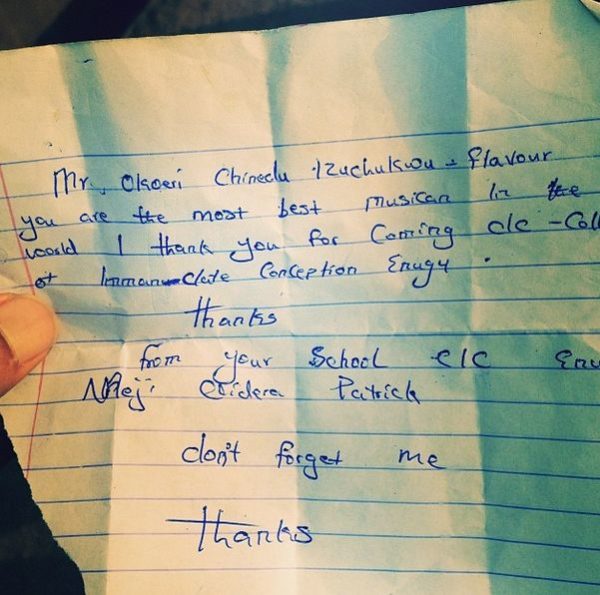 Mr. Okoeri Chinedu Izuchukwu - flavour
you are the most best musican in the
world I thank you for Coming CIC - Coll
of Imman Clate Conception Enugu.
Thanks
from your School CIC Enu
Chidera Patrick
don't forget me
Thanks